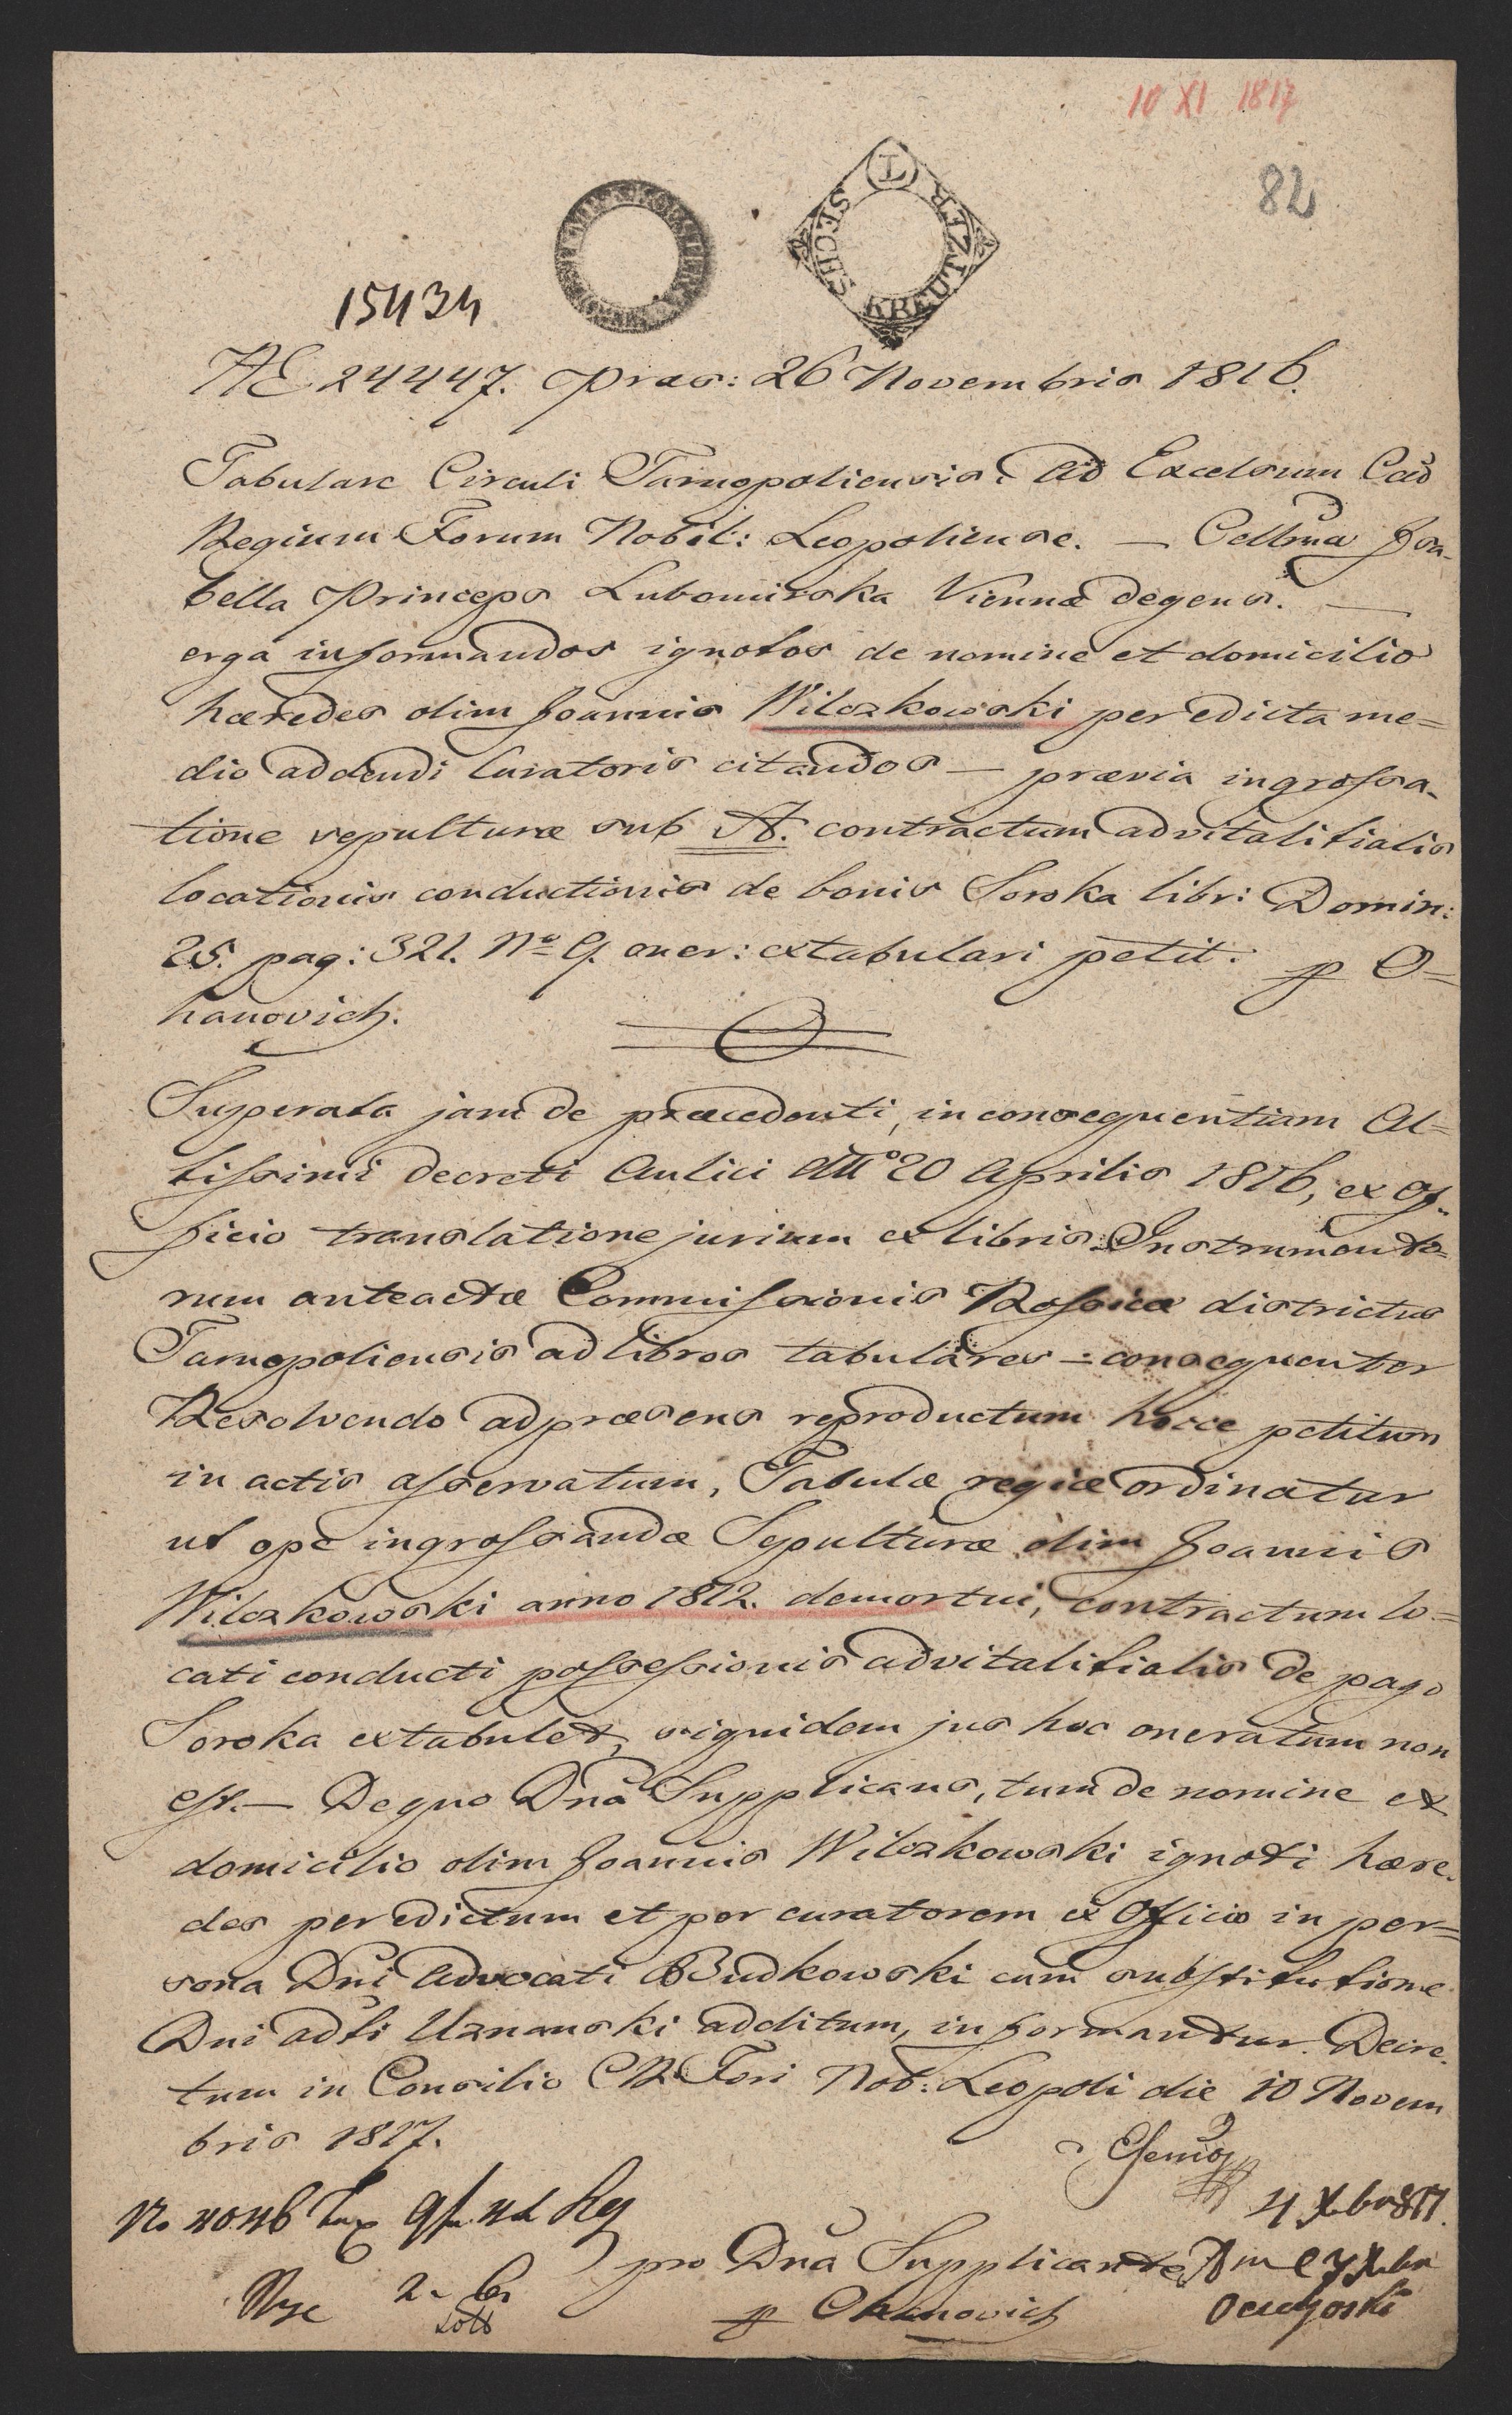 10 XI 1817
82
SECHS KREUTZER
15434
AE 24447. Praes: 26 Novembris 1816.
Tabulare Circuli Tarnopoliensis. Ad Excelsum Caes̄
Regium Forum Nobil: Leopoliense. — Cellma Isa-
bella Princeps Lubomirska Viennæ degens. —
erga informandos ignotos de nomine et domicilio
hæredes olim Joannis Wilczkowski per edicta me=
dio addendi Curatoris citandos — prævia ingrossa-
tione sepulturæ sub A. contractum advitalitialis
locationis conductionis de bonis Soroka libr: Domin:
25. pag: 321. No 9. oner: extabulari petit. p O=
hanovich.
Superata jam de præcedenti, in consequentiam Al=
tissimi Decreti Aulici ddto 20 Aprilis 1816, ex Of-
ficio translatione jurium ex libris Instrumento=
rum anteactæ Commissionis Rossicæ districtus
Tarnopoliensis ad libros tabulares — consequenter
Resolvendo ad præsens reproductum hocce petitum
in actis asservatum, Tabulæ regiæ ordinatur
ut ope ingrossandæ Sepulturæ olim Joannis
Wilczkowski anno 1812. demortui, contractum lo=
cati conducti possessionis advitalitialis de pago
Soroka extabulet, siquidem jus hoc oneratum non
est. — De quo Dnā Supplicans, tum de nomine et
domicilio olim Joannis Wilczkowski ignoti hære-
des per edictum et per curatorem ex Officio in per=
sona Dni Advocati Budkowski cum substitutione
Dni adti Uznanski additum, informantur. Decre-
tum in Consilio CR Fori Nob: Leopoli die 10 Novem
bris 1817.
4 Xbr 817.
pro Dnā Supplicante
p Ohanovich